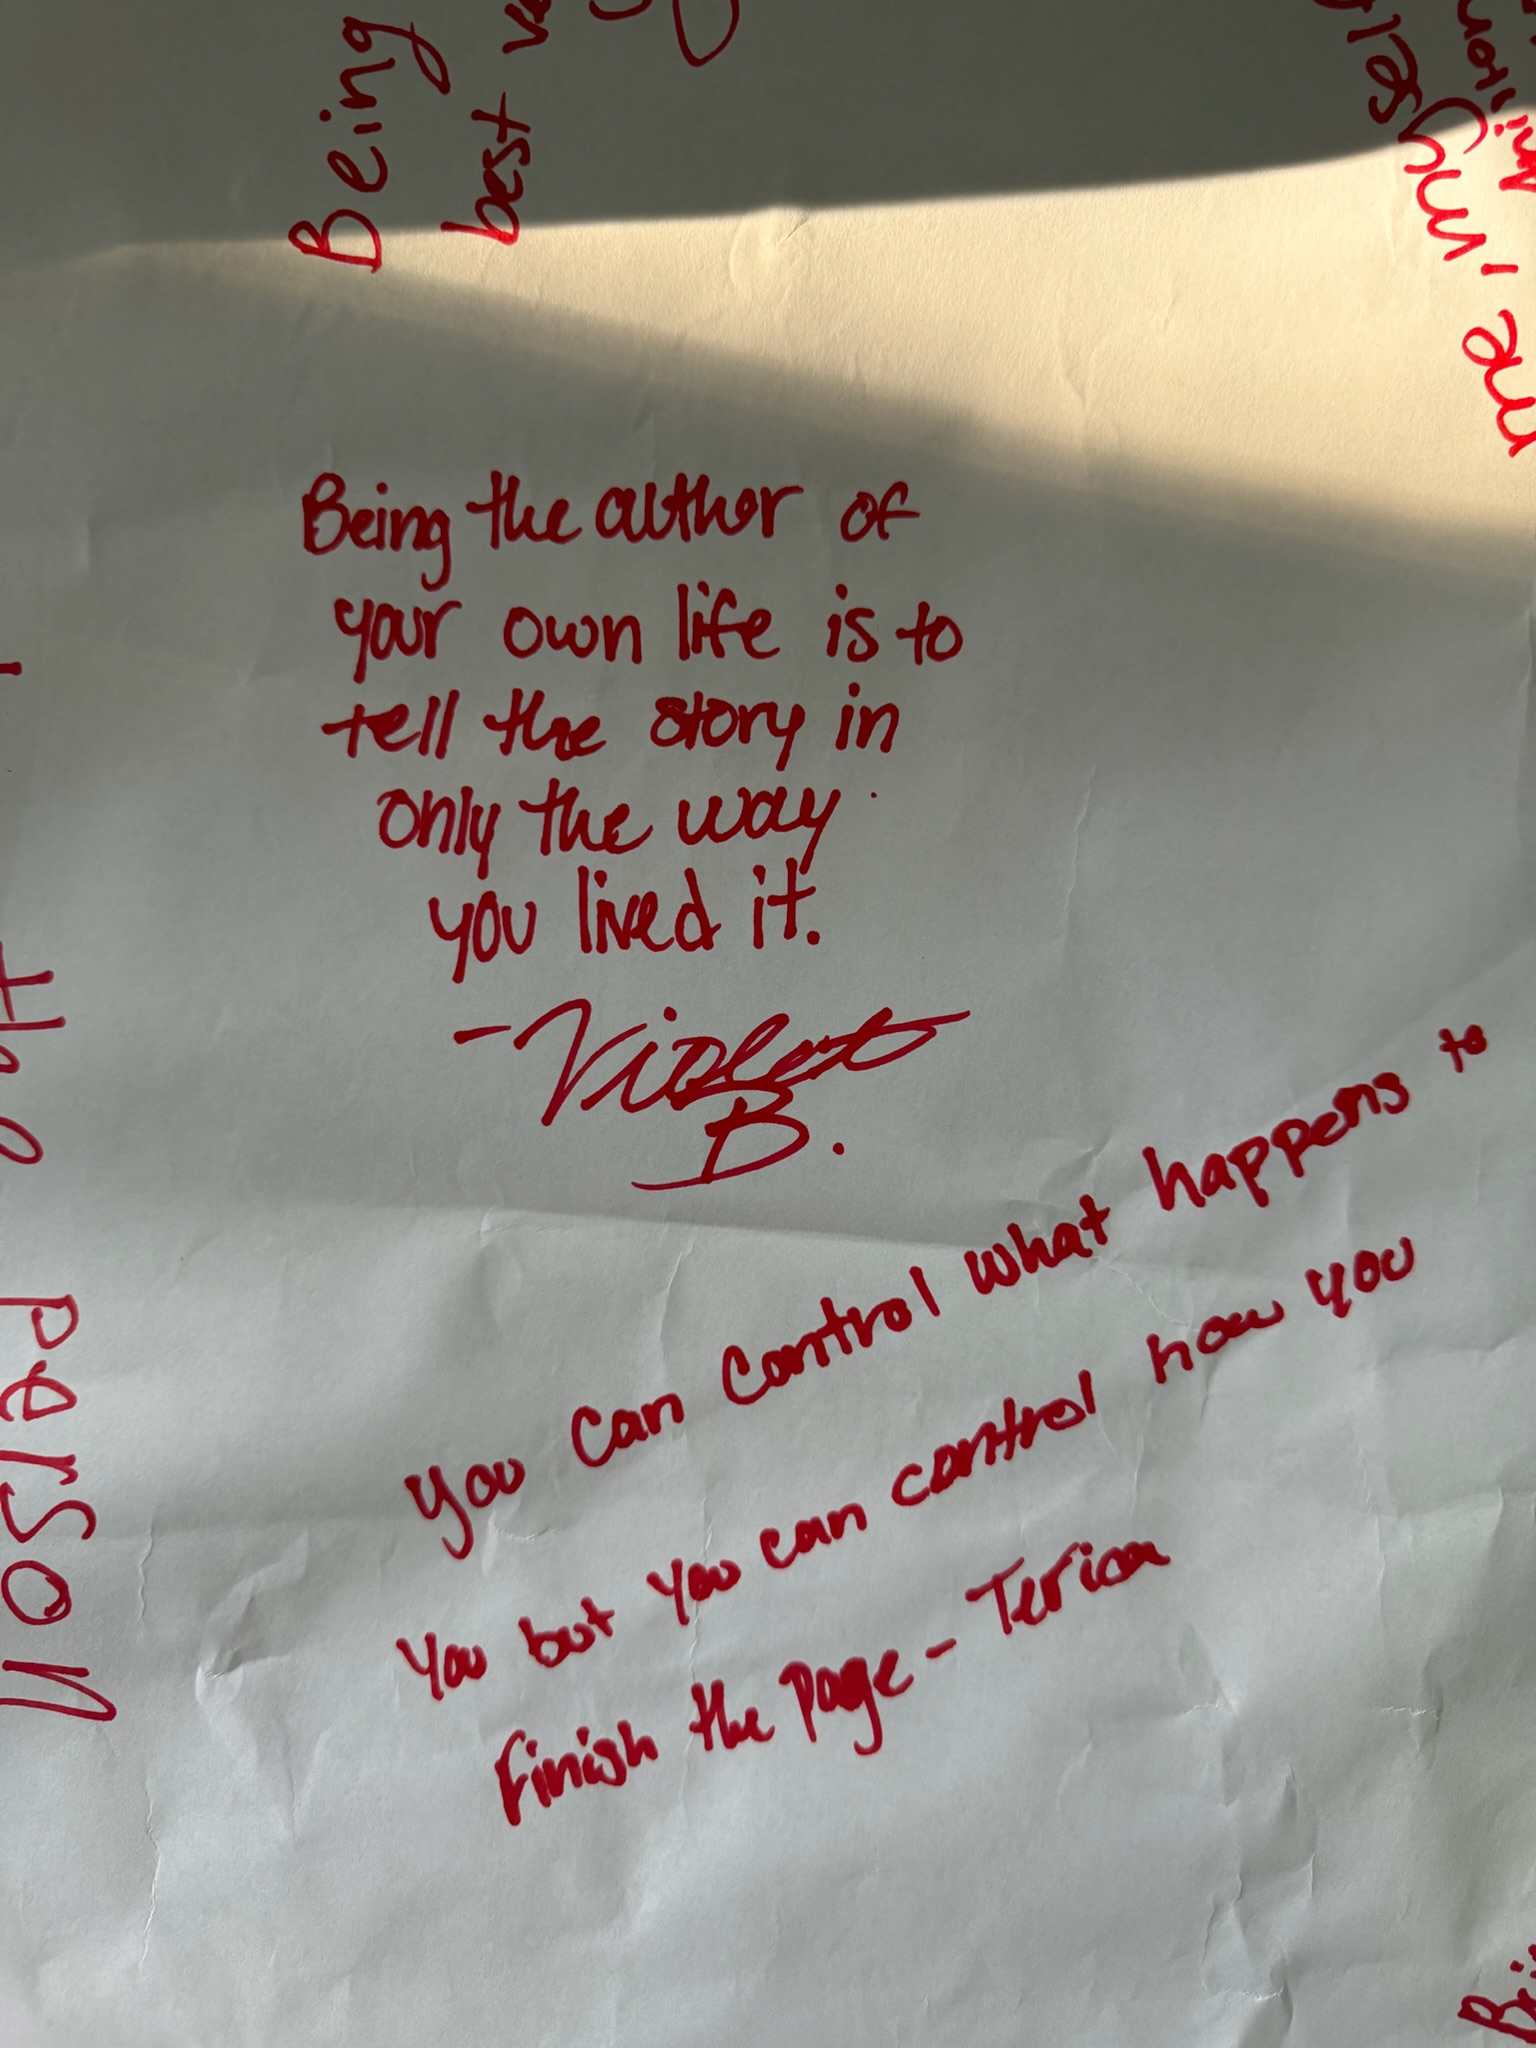 Being
best
Being the author of
your own life is to
tell the story in
only the way
you lived it.
-Violet
B.
You can control what happens to
you but you can control how you
finish the page - Terica
the person